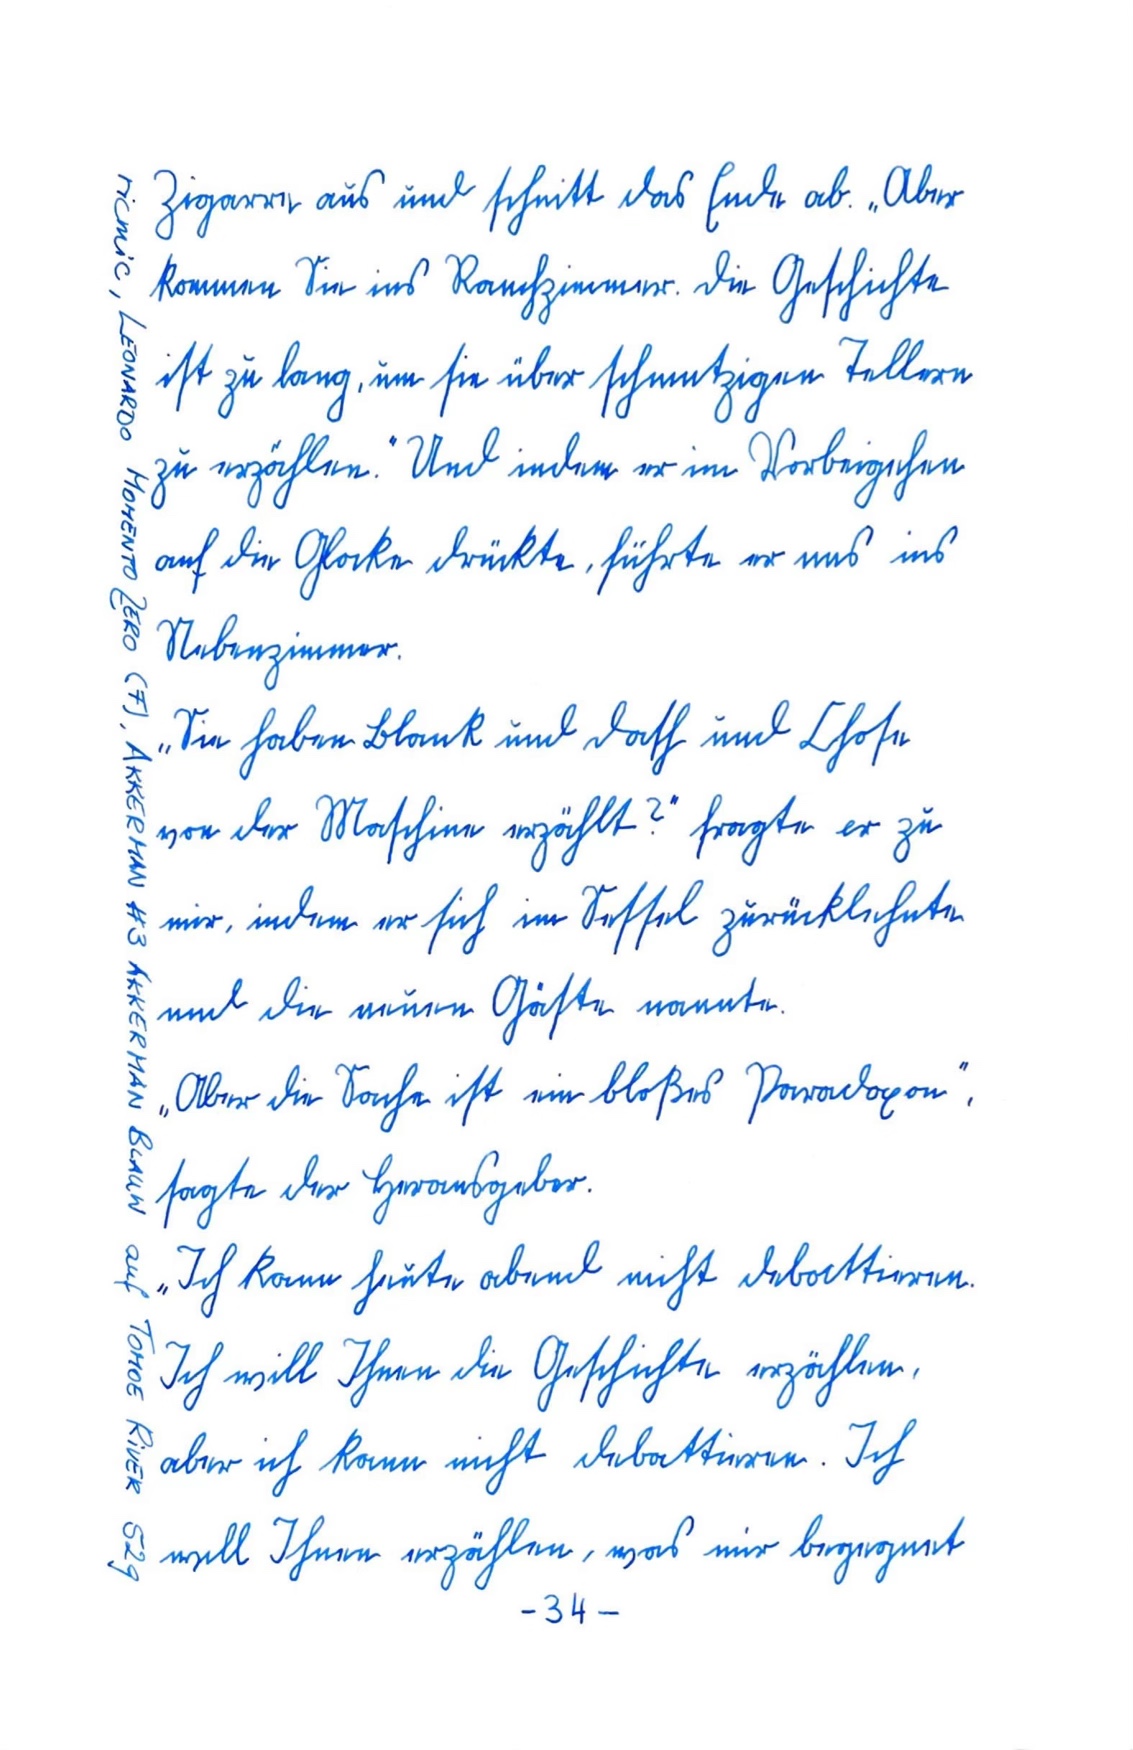 Zigarre aus und schnitt das Ende ab. „Aber
kommen Sie ins Rauchzimmer. Die Geschichte
ist zu lang, um sie über schmutzigen Tellern
zu erzählen.“ Und indem er im Vorbeigehen
auf die Glocke drückte, führte er uns ins
Nebenzimmer.
„Sie haben Blank und Dash und Chose
von der Maschine erzählt?“ fragte er zu
mir, indem er sich im Sessel zurücklehnte
und die neuen Gäste nannte.
„Aber die Sache ist ein bloßes Paradoxon“,
sagte der Herausgeber.
„Ich kann heute abend nicht debattieren.
Ich will Ihnen die Geschichte erzählen,
aber ich kann nicht debattieren. Ich
will Ihnen erzählen, was mir begegnet
-34-
ricmic, LEONARDO MOMENTO ZERO (F), AKKERMAN #3 AKKERMAN BLAUW auf TOMOE RIVER 52g